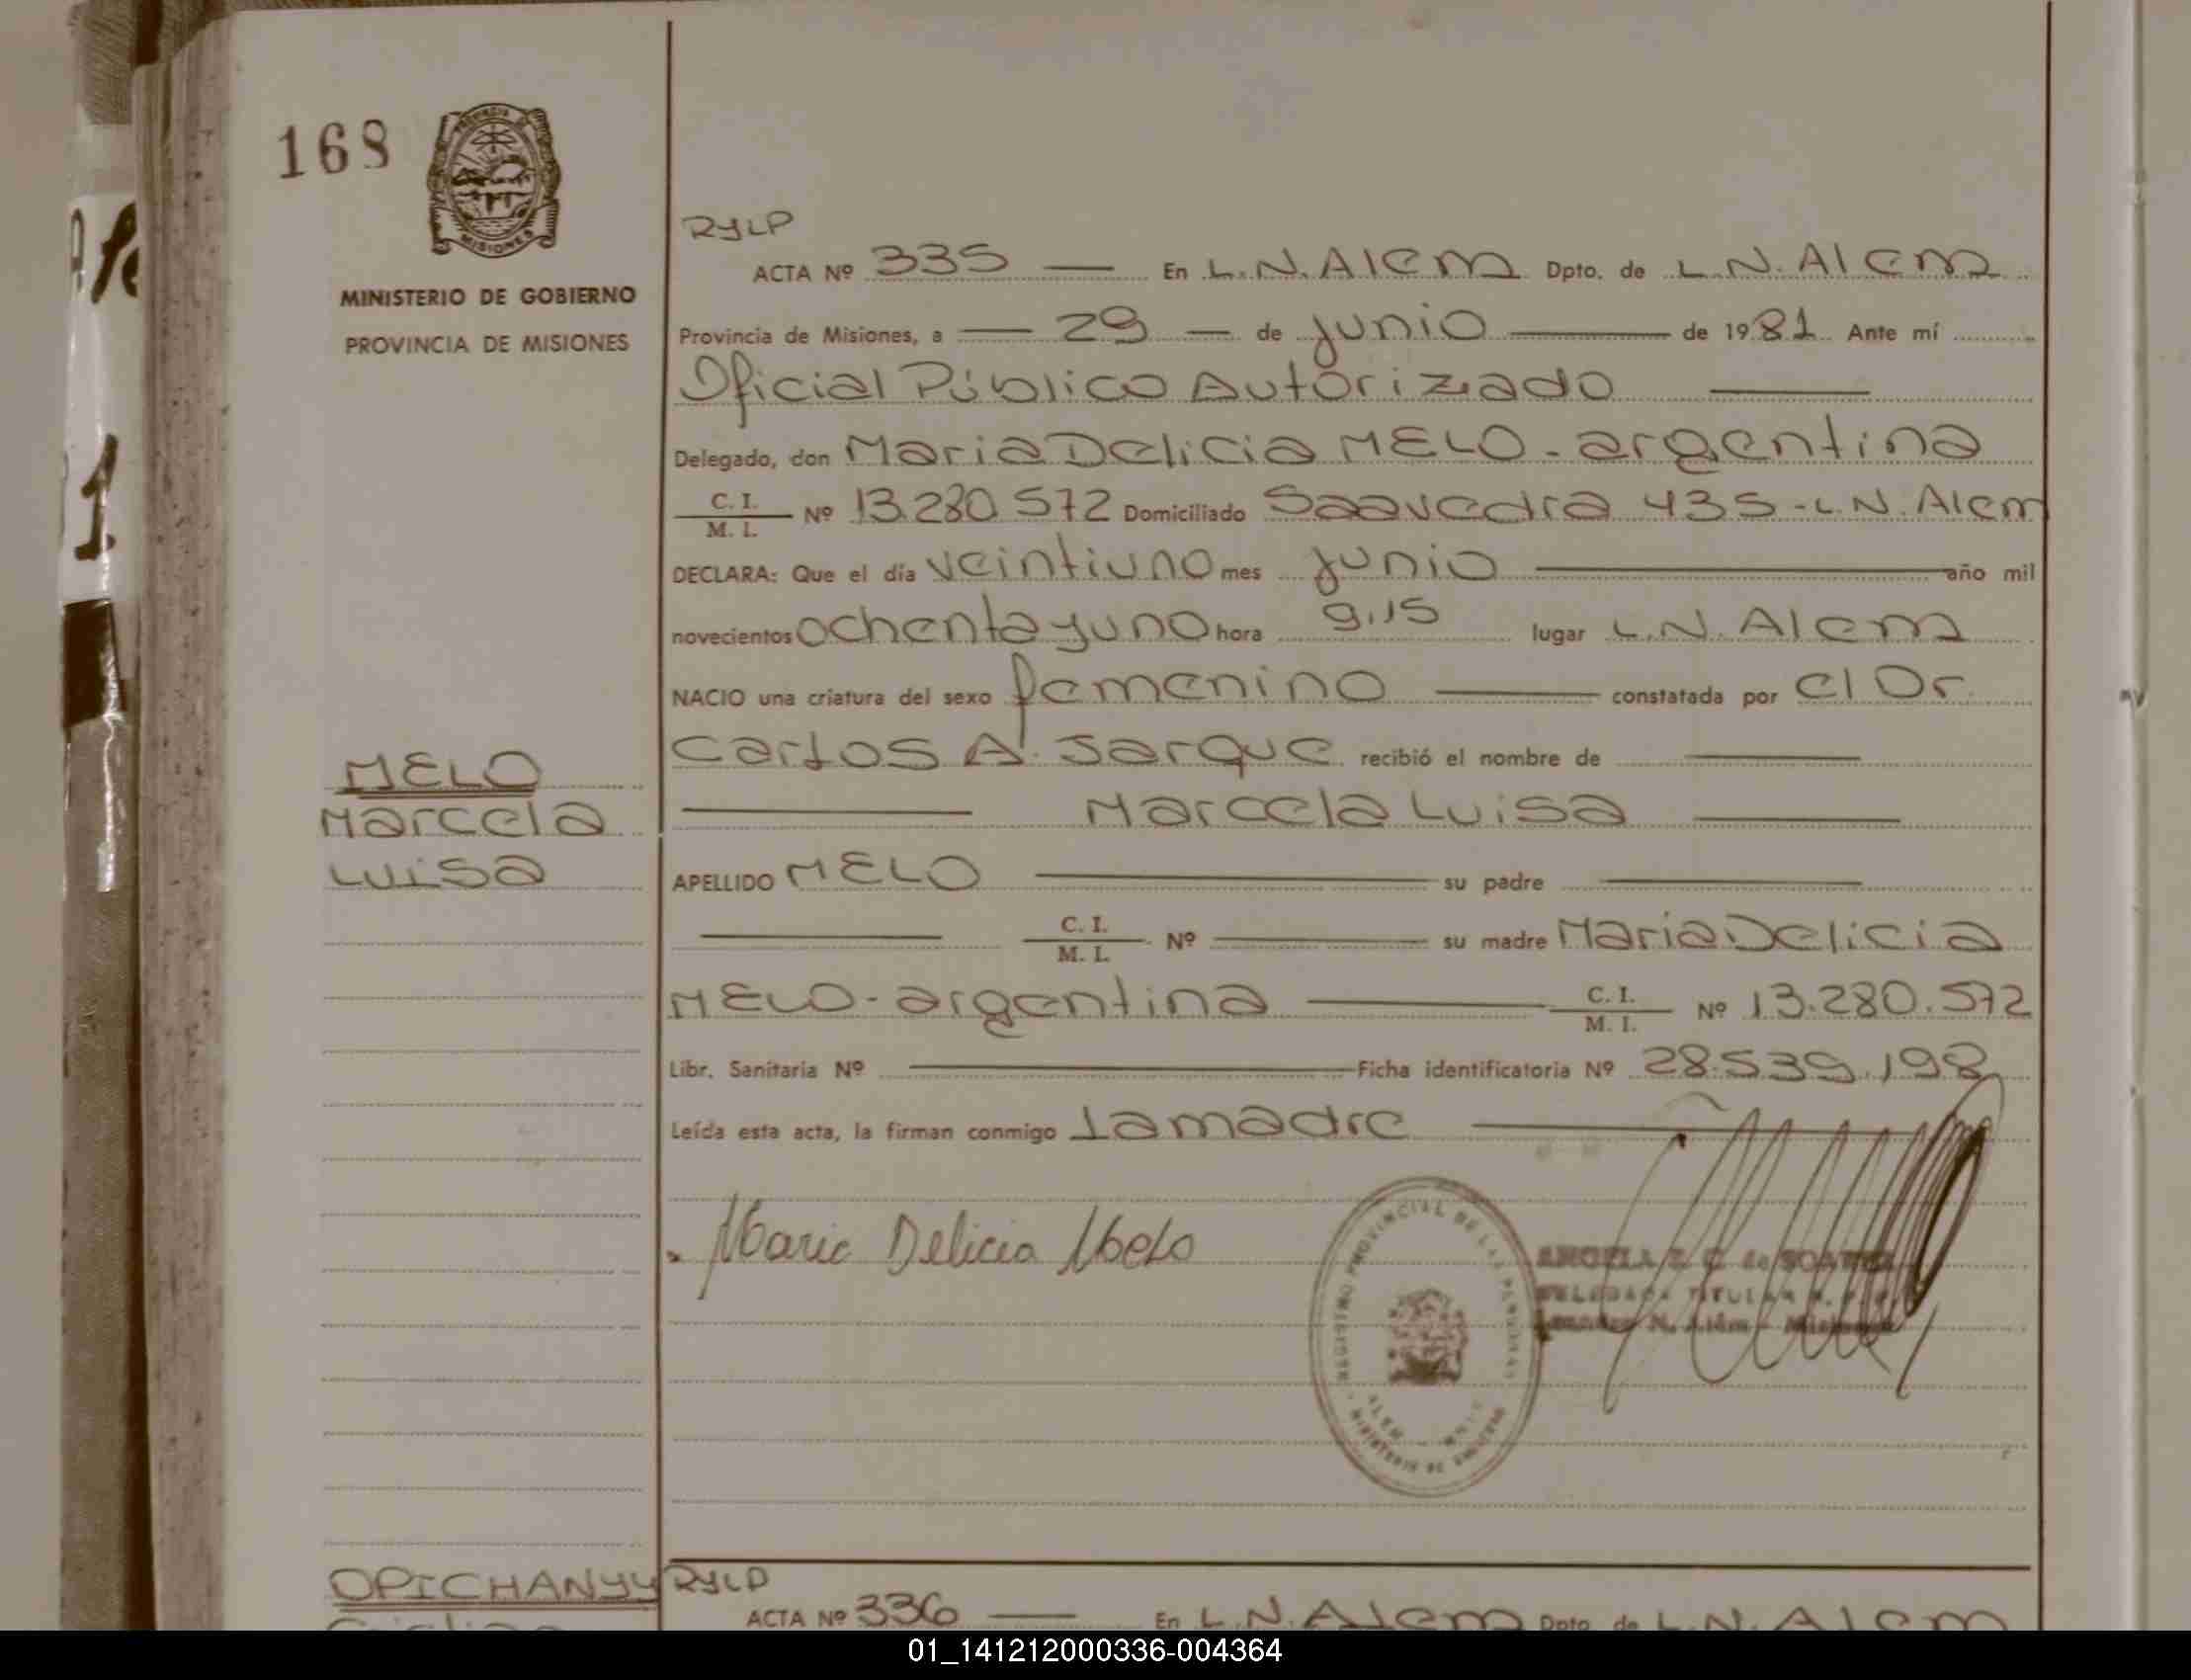 168
PROVINCIA DE
MISIONES
MINISTERIO DE GOBIERNO
PROVINCIA DE MISIONES
RyLP
ACTA Nº 335 — En L.N. Alem Dpto. de L.N. Alem
Provincia de Misiones, a — 29 — de junio — de 1981 Ante mí
Oficial Público Autorizado —
Delegado, don Maria Delicia MELO - argentina
C. I. / M. I. Nº 13.280.572 Domiciliado Saavedra 435 - L.N. Alem
DECLARA: Que el día veintiuno mes junio — año mil
novecientos ochenta y uno hora 9,15 lugar L.N. Alem
NACIO una criatura del sexo femenino — constatada por el Dr.
Carlos A. Jarque recibió el nombre de —
— Marcela Luisa —
MELO
Marcela
Luisa
APELLIDO MELO — su padre —
— C. I. / M. I. Nº — su madre María Delicia
MELO - argentina — C. I. / M. I. Nº 13.280.572
Libr. Sanitaria Nº — Ficha identificatoria Nº 28.539.198
Leída esta acta, la firman conmigo la madre —
Maria Delicia Melo
REGISTRO PROVINCIAL DE LAS PERSONAS
ALEM
MINISTERIO DE GOBIERNO
de
DELEGADA TITULAR
N. Alem - Misiones
OPICHANYY
RyLP
ACTA Nº 336 — En L.N. Alem Dpto. de L.N. Alem
01_141212000336-004364